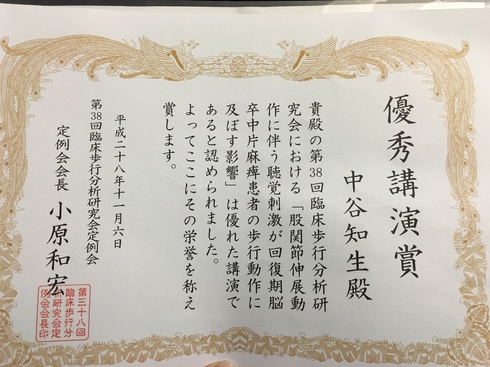 優秀講演賞
中谷知生殿
貴殿の第38回臨床歩行分析研
究会における「股関節伸展動
作に伴う聴覚刺激が回復期脳
卒中片麻痺患者の歩行動作に
及ぼす影響」は優れた講演で
あると認められました。
よってここにその栄誉を称え
賞します。
平成二十八年十一月六日
第38回臨床歩行分析研究会定例会
定例会会長 小原和宏
第三十八回
臨床歩行分
析研究会定
例会会長印